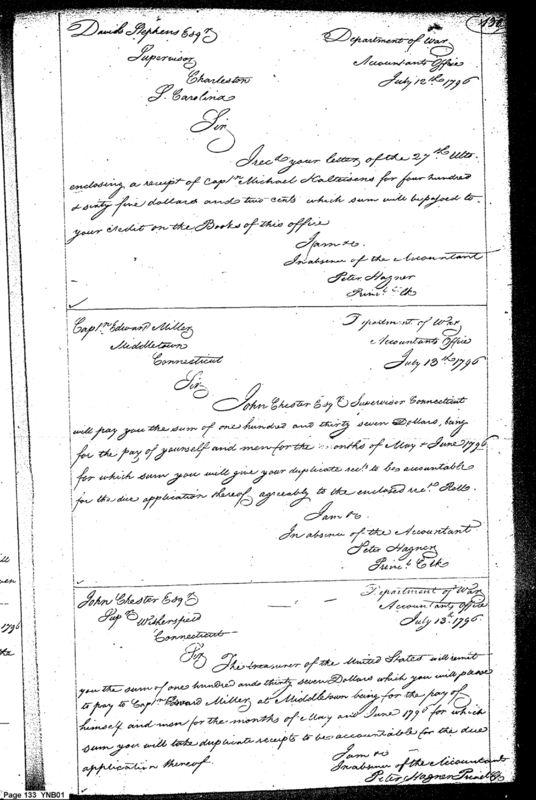 133
David Stephens Esqr.
Supervisor
Charleston
S. Carolina
Department of War
Accountants Office
July 12th 1796
Sir
I recd. your letter of the 27th Ulto.
enclosing a receipt of Captn. Michael Kalteisens for four hundred
& sixty five dollars and two cents which sum will be passed to
your credit on the Books of this office
I am &c.
In absence of the Accountant
Peter Hagner
Princl. Clk
Captn. Edward Miller
Middletown
Connecticut
Department of War
Accountants Office
July 13th 1796
Sir
John Chester Esqr. Supervisor Connecticut
will pay you the sum of one hundred and thirty seven Dollars, being
for the pay of yourself and men for the months of May & June 1796
for which sum you will give your duplicate rects. to be accountable
for the due application thereof agreeably to the enclosed rect. Rolls.
I am &c
In absence of the Accountant
Peter Hagner
Princl. Clk
John Chester Esqr.
Supr. Withersfield
Connecticut
Department of War
Accountants Office
July 13th. 1796
Sir
The treasurer of the United States will remit
you the sum of one hundred and thirty seven Dollars which you will please
to pay to Captn. Edward Miller at Middletown being for the pay of
himself and men for the months of May and June 1796 for which
sum you will take duplicate receipts to be accountable for the due
application thereof.
I am &c
In absence of the Accountant
Peter Hagner Princl Clk
1796
the
Page 133 YNB01